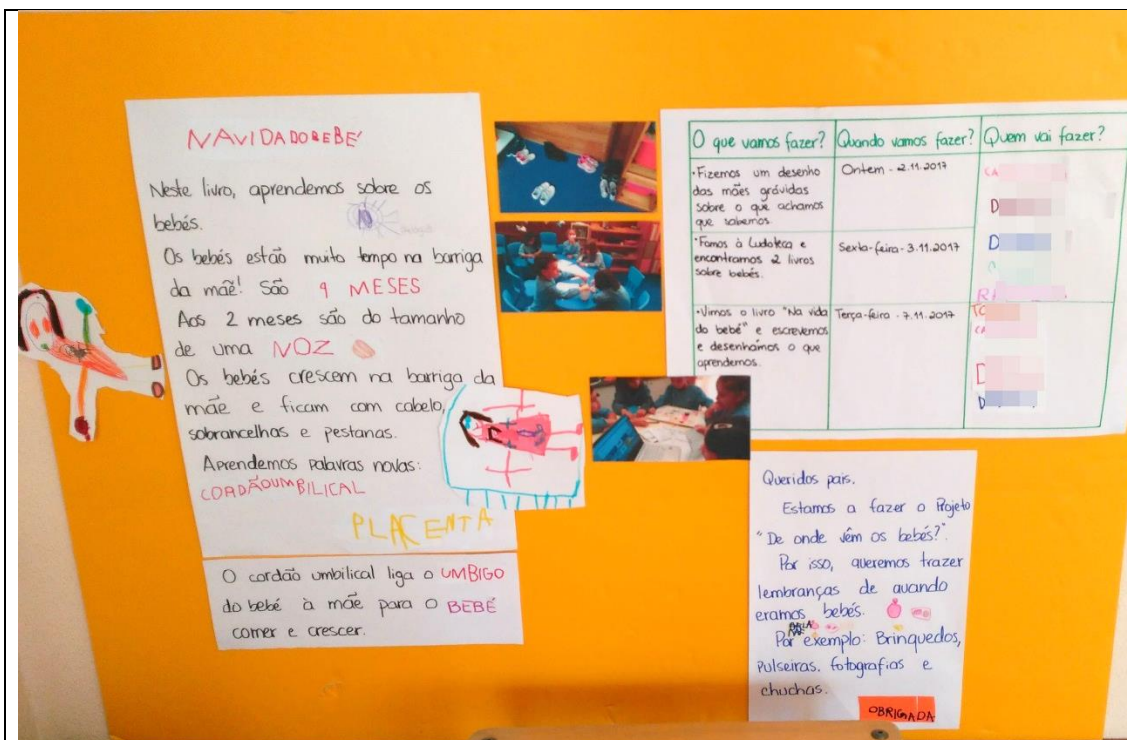 NAVIDADOBEBÉ
Neste livro, aprendemos sobre os
bebés.
Os bebés estão muito tempo na barriga
da mãe! São 9 MESES
Aos 2 meses são do tamanho
de uma NOZ
Os bebés crescem na barriga da
mãe e ficam com cabelo,
sobrancelhas e pestanas.
Aprendemos palavras novas:
CORDÃOUMBILICAL
PLACENTA
O cordão umbilical liga o UMBIGO
do bebé à mãe para o BEBÉ
comer e crescer.
O que vamos fazer?
Quando vamos fazer?
Quem vai fazer?
•Fizemos um desenho
das mães grávidas
sobre o que achamos
que sabemos.
Ontem - 2.11.2017
CA
D
•Fomos à Ludoteca e
encontramos 2 livros
sobre bebés.
Sexta-feira - 3.11.2017
D
R
•Vimos o livro "Na vida
do bebé" e escrevemos
e desenhamos o que
aprendemos.
Terça-feira - 7.11.2017
CA
D
D
Queridos pais,
Estamos a fazer o Projeto
"De onde vêm os bebés?".
Por isso, queremos trazer
lembranças de quando
eramos bebés.
Por exemplo: Brinquedos,
Pulseiras, fotografias e
chuchas.
OBRIGADA